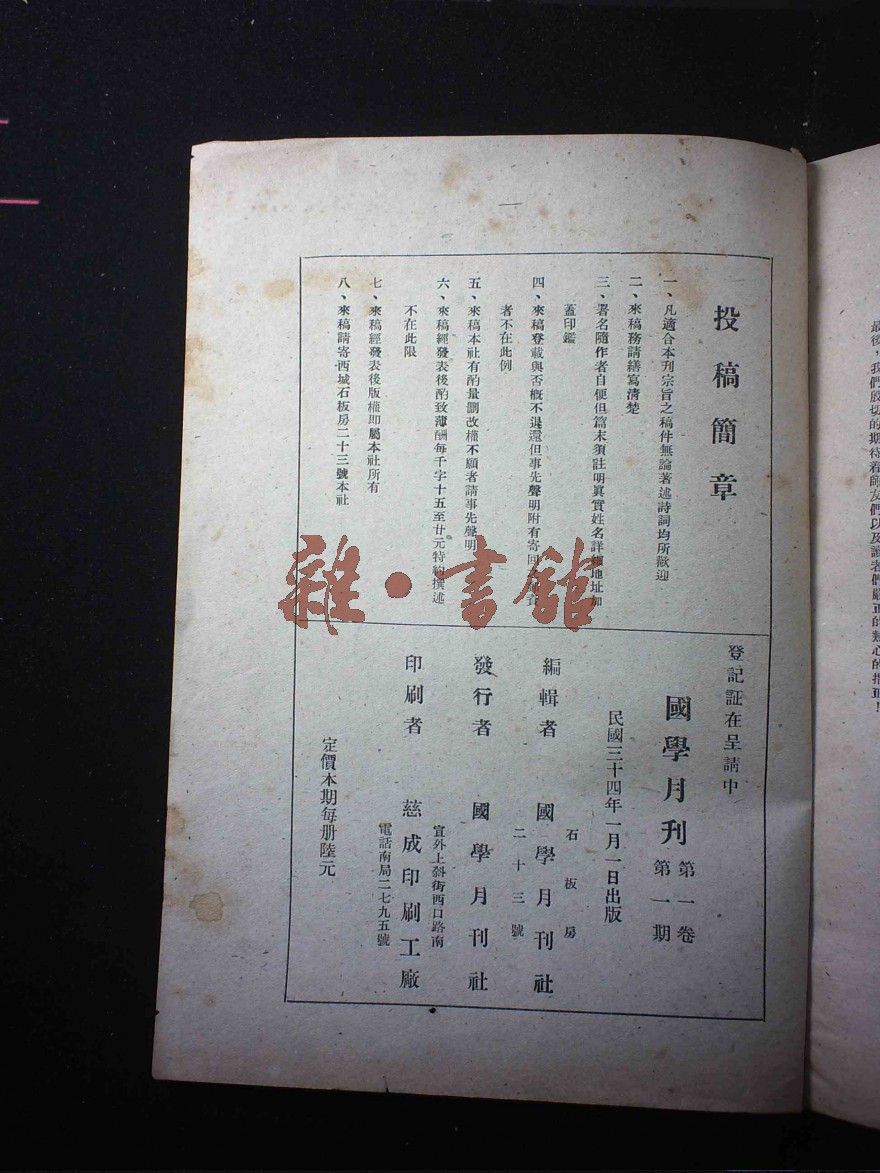 投稿簡章
一、凡適合本刊宗旨之稿件無論著述詩詞均所歡迎
二、來稿務請繕寫清楚
三、署名隨作者自便但篇末須註明眞實姓名詳細地址加
蓋印鑑
四、來稿登載與否概不退還但事先聲明附有寄回
者不在此例
五、來稿本社有酌量刪改權不願者請事先聲明
六、來稿經發表後酌致薄酬每千字十五至廿元特約撰述
不在此限
七、來稿經發表後版權即屬本社所有
八、來稿請寄西城石板房二十三號本社
登記証在呈請中
國學月刊
第一卷
第一期
民國三十四年一月一日出版
編輯者 國學月刊社
石板房
二十三號
發行者 國學月刊社
印刷者 慈成印刷工廠
宣外上斜街西口路南
電話南局二七九五號
定價本期每册陸元
雜·書館
最後，我們殷切的期待着師友們以及讀者們嚴正的熱心的指正！